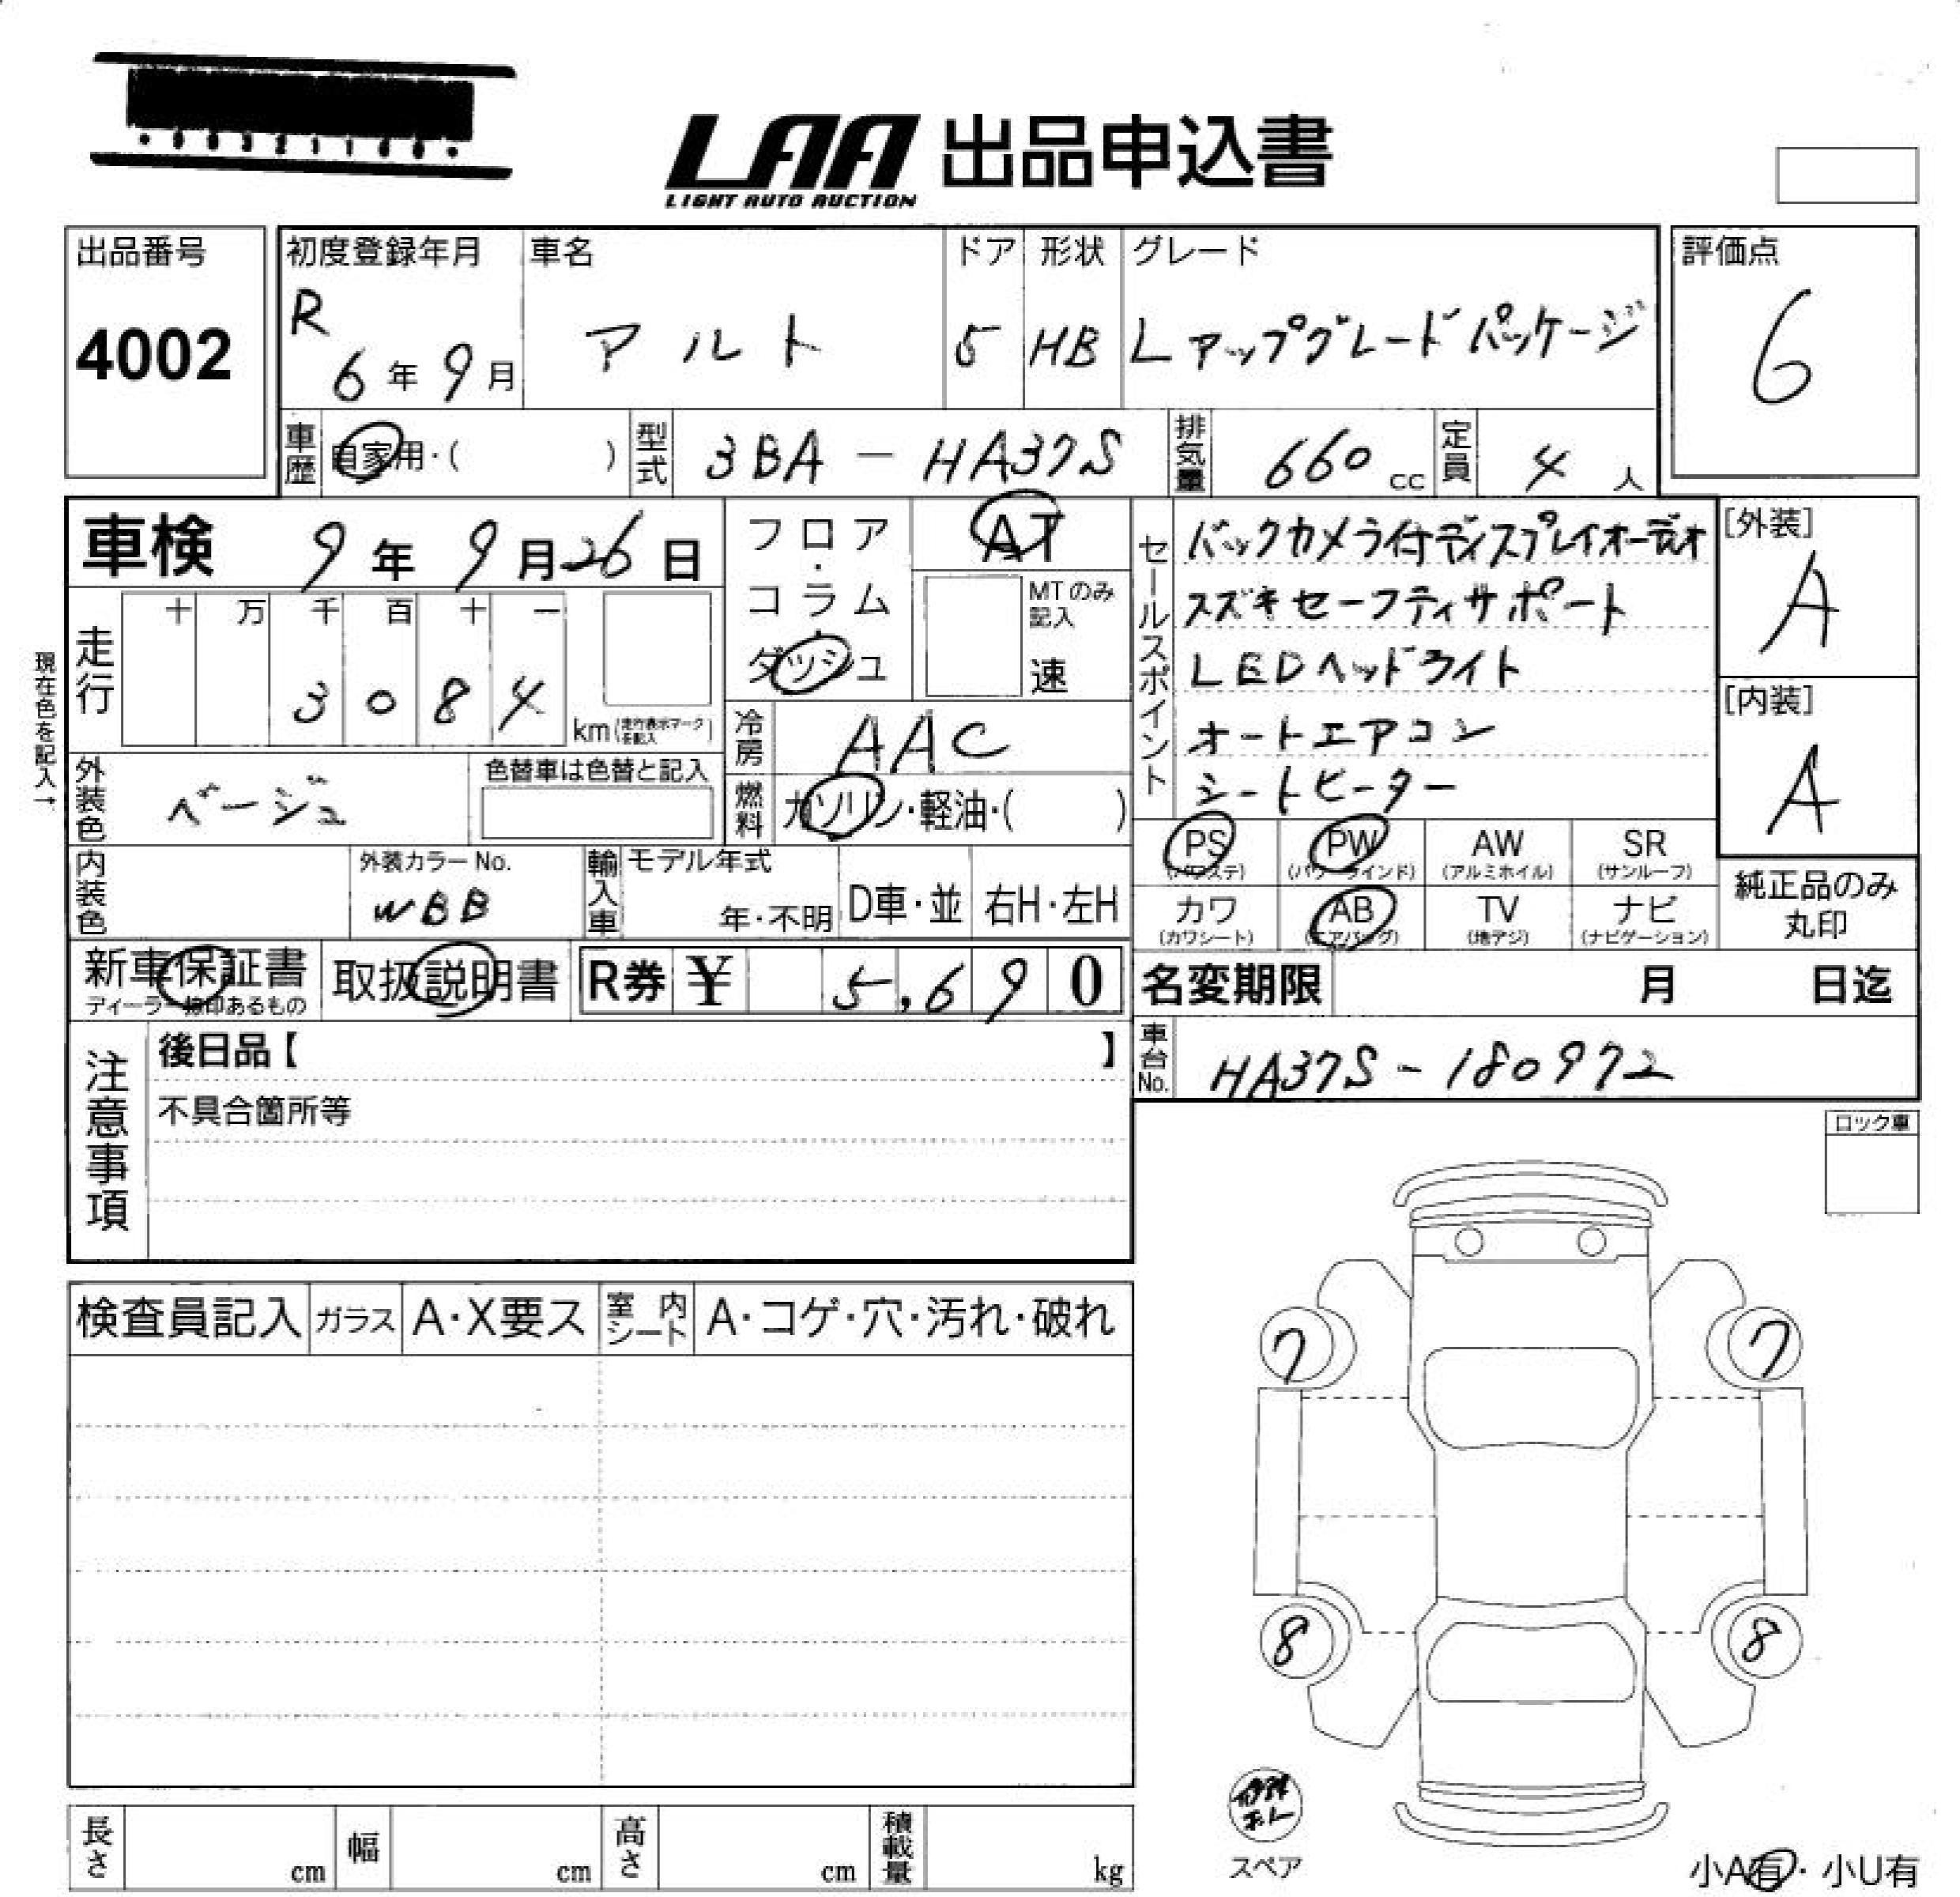 LAA 出品申込書
LIGHT AUTO AUCTION
出品番号
4002
初度登録年月
R 6年9月
車名
アルト
ドア
5
形状
HB
グレード
Lアップグレードパッケージ
評価点
6
車歴
自家用・( )
型式
3BA-HA37S
排気量
660 cc
定員
4 人
車検 9年9月26日
フロア・コラム・ダッシュ
AT
MTのみ記入
速
セールスポイント
バックカメラ付ディスプレイオーディオ
スズキセーフティサポート
LEDヘッドライト
オートエアコン
シートヒーター
[外装]
A
[内装]
A
現在色を記入→
走行
十 万 千 百 十 一
3 0 8 4
km(走行表示マークを記入)
冷房
AAC
外装色
ベージュ
色替車は色替と記入
燃料
ガソリン・軽油・( )
内装色
外装カラーNo.
WBB
輸入車
モデル年式
年・不明
D車・並
右H・左H
PS
(パワステ)
PW
(パワーウインド)
AW
(アルミホイル)
SR
(サンルーフ)
カワ
(カワシート)
AB
(エアバッグ)
TV
(地デジ)
ナビ
(ナビゲーション)
純正品のみ
丸印
新車保証書
取扱説明書
R券 ¥ 5,690
名変期限 月 日迄
車台No.
HA37S-180972
注意事項
後日品【 】
不具合箇所等
ロック車
検査員記入
ガラス
A・X要ス
室内シート
A・コゲ・穴・汚れ・破れ
7
7
8
8
スペア
長さ cm
幅 cm
高さ cm
積載量 kg
小A有・小U有